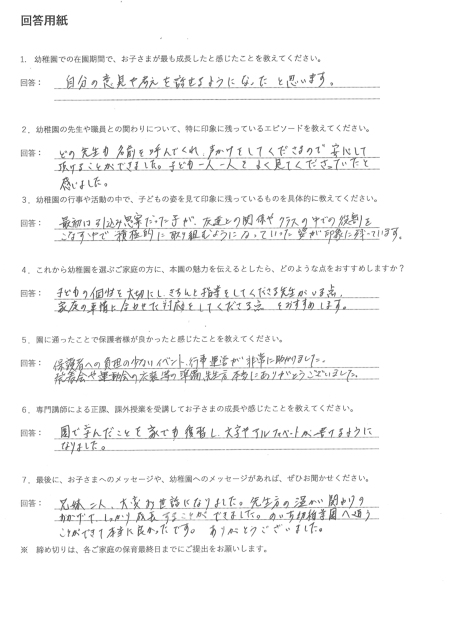 回答用紙
1. 幼稚園での在園期間で、お子さまが最も成長したと感じたことを教えてください。
回答： 自分の意見や考えを話せるようになったと思います。
2．幼稚園の先生や職員との関わりについて、特に印象に残っているエピソードを教えてください。
回答： どの先生も名前を呼んでくれ、声かけをしてくださるので安心して
頂けることができました。子ども一人一人をよく見てくださっていたと
感じました。
3．幼稚園の行事や活動の中で、子どもの姿を見て印象に残っているものを具体的に教えてください。
回答： 最初は引込み思案だった子が、友達との関係やクラスの中での役割を
こなす中で積極的に取り組むようになっていった姿が印象に残っています。
4．これから幼稚園を選ぶご家庭の方に、本園の魅力を伝えるとしたら、どのような点をおすすめしますか？
回答： 子どもの個性を大切にし、きちんと指導をしてくださる先生がいる点、
家庭の事情に合わせた対応をしてくださる点をおすすめします。
5．園に通ったことで保護者様が良かったと感じたことを教えてください。
回答： 保護者への負担の少ないイベント、行事運営が非常に助かりました。
発表会や運動会の衣装等の準備、先生方本当にありがとうございました。
6．専門講師による正課、課外授業を受講してお子さまの成長や感じたことを教えてください。
回答： 園で学んだことを家でも復習し、文字やアルファベットが書けるように
なりました。
7．最後に、お子さまへのメッセージや、幼稚園へのメッセージがあれば、ぜひお聞かせください。
回答： 兄妹二人、大変お世話になりました。先生方の温かい関わりの
おかげで、しっかり成長することができました。のいち幼稚学園へ通う
ことができて本当に良かったです。ありがとうございました。
※ 締め切りは、各ご家庭の保育最終日までにご提出をお願いします。